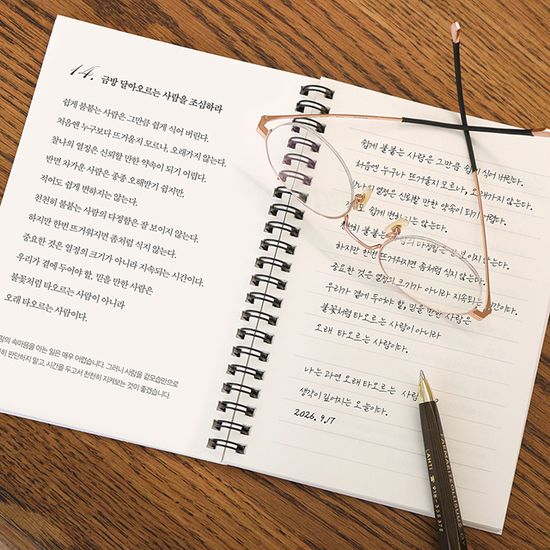 14. 금방 달아오르는 사람을 조심하라
쉽게 불붙는 사람은 그만큼 쉽게 식어 버린다.
처음엔 누구보다 뜨거울지 모르나, 오래가지 않는다.
찰나의 열정은 신뢰할 만한 약속이 되기 어렵다.
반면 차가운 사람은 종종 오해받기 쉽지만,
적어도 쉽게 변하지는 않는다.
천천히 불붙는 사람의 다정함은 잘 보이지 않는다.
하지만 한번 뜨거워지면 좀처럼 식지 않는다.
중요한 것은 열정의 크기가 아니라 지속되는 시간이다.
우리가 곁에 두어야 할, 믿을 만한 사람은
불꽃처럼 타오르는 사람이 아니라
오래 타오르는 사람이다.
속마음을 아는 일은 매우 어렵습니다. 그러니 사람을 겉모습만으로
판단하지 말고, 시간을 두고서 천천히 지켜보는 것이 좋겠습니다.
쉽게 불붙는 사람은 그만큼 쉽게 식어 버린다.
처음엔 누구나 뜨거울지 모르나, 오래가지 않는다.
열정은 신뢰할 만한 약속이 되기 어렵다.
쉽게 변하지는 않는다.
불붙는 사람의 다정함은 잘 보이지 않는다.
하지만 한번 뜨거워지면 좀처럼 식지 않는다.
중요한 것은 열정의 크기가 아니라 지속되는 시간이다.
우리가 곁에 두어야 할, 믿을 만한 사람은
불꽃처럼 타오르는 사람이 아니라
오래 타오르는 사람이다.
나는 과연 오래 타오르는 사람
생각이 깊어지는 오늘이다.
2026. 9/17